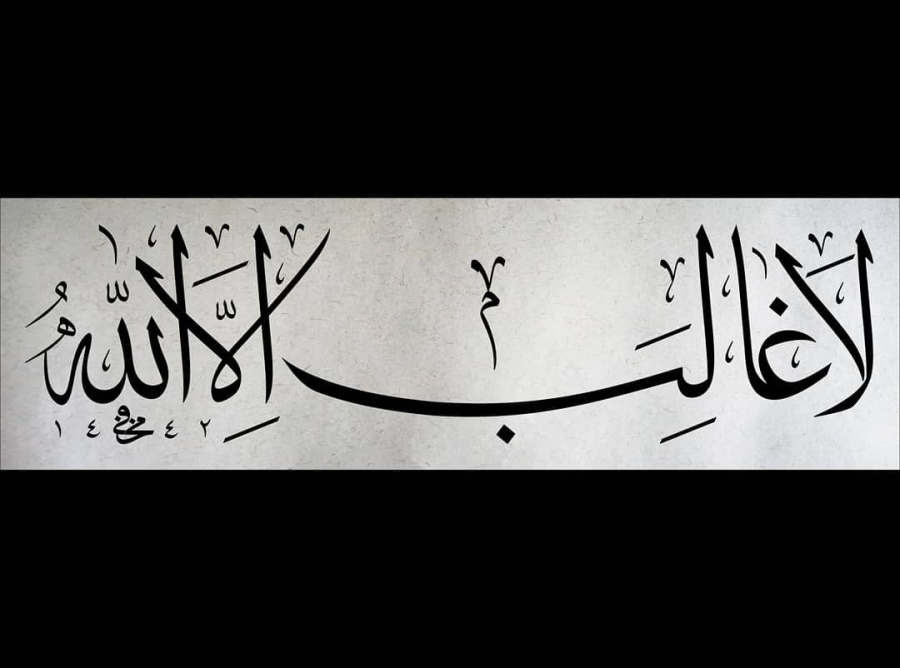 لَا غَالِبَ إِلَّا اللّٰهُ
١٤٤٢